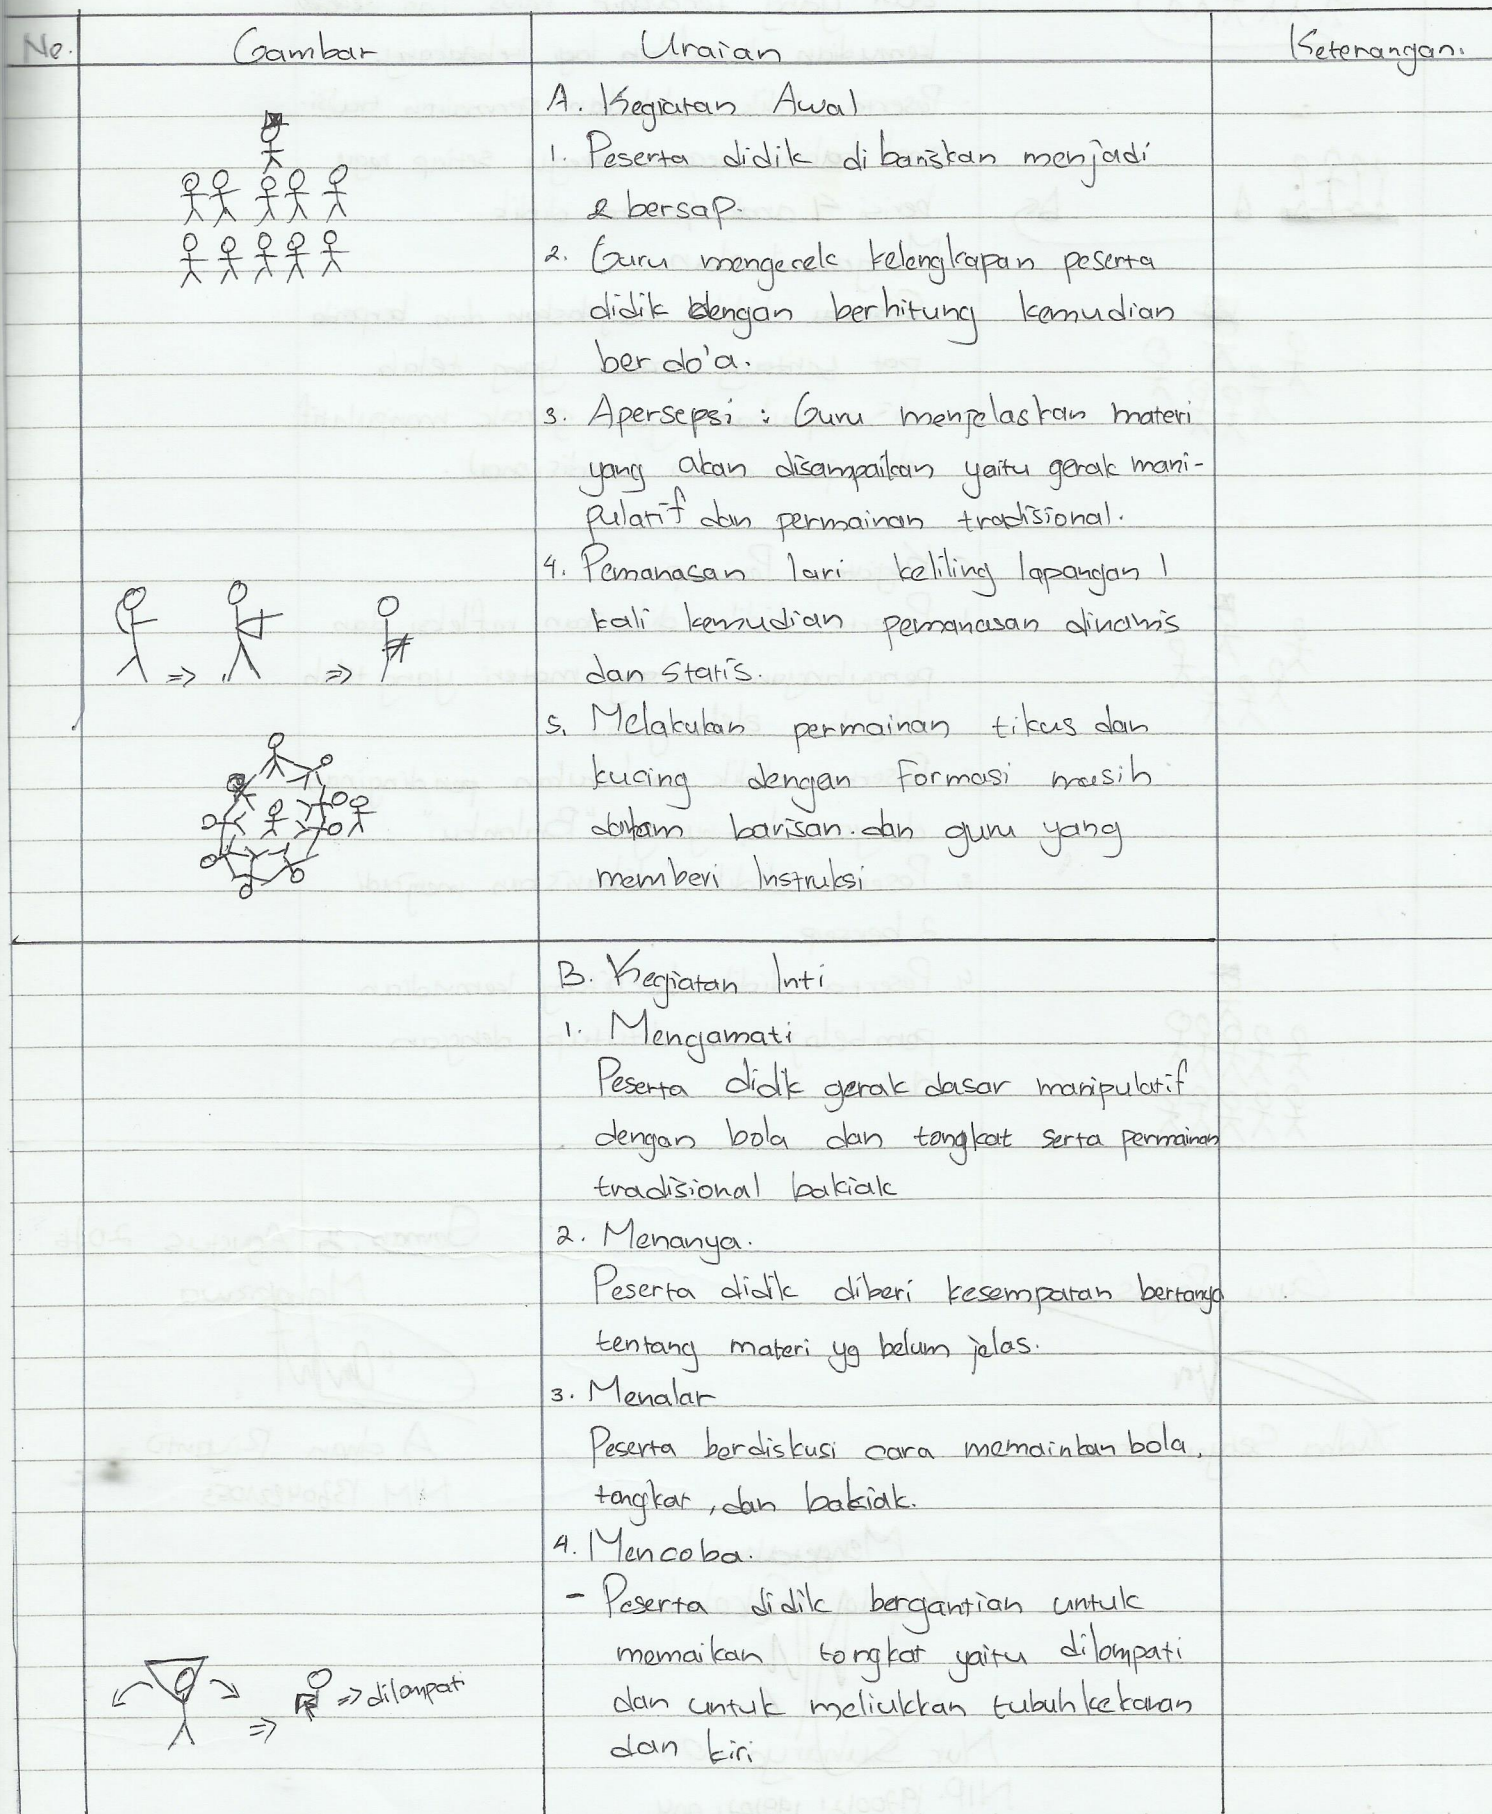 No. Gambar Uraian Keterangan.
A. Kegiatan Awal
1. Peserta didik dibariskan menjadi
2 bersap.
2. Guru mengecek kelengkapan peserta
didik dengan berhitung kemudian
berdo'a.
3. Apersepsi : Guru menjelaskan materi
yang akan disampaikan yaitu gerak mani-
pulatif dan permainan tradisional.
4. Pemanasan lari keliling lapangan 1
kali kemudian pemanasan dinamis
dan statis.
5. Melakukan permainan tikus dan
kucing dengan formasi masih
dalam barisan. dan guru yang
memberi Instruksi
B. Kegiatan Inti
1. Mengamati
Peserta didik gerak dasar manipulatif
dengan bola dan tongkat serta permainan
tradisional bakiak
2. Menanya.
Peserta didik diberi kesempatan bertanya
tentang materi yg belum jelas.
3. Menalar
Peserta berdiskusi cara memainkan bola,
tongkat, dan bakiak.
4. Mencoba.
- Peserta didik bergantian untuk
memaikan tongkat yaitu dilompati
dan untuk meliukkan tubuh kekanan
dan kiri
=> dilompati